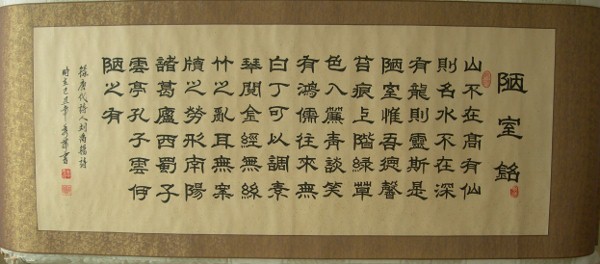 陋室銘
山不在高有仙
則名水不在深
有龍則靈斯是
陋室惟吾德馨
苔痕上階綠草
色入簾青談笑
有鴻儒往來無
白丁可以調素
琴閱金經無絲
竹之亂耳無案
牘之勞形南陽
諸葛廬西蜀子
雲亭孔子雲何
陋之有
錄唐代詩人劉禹錫詩
時在己丑年書